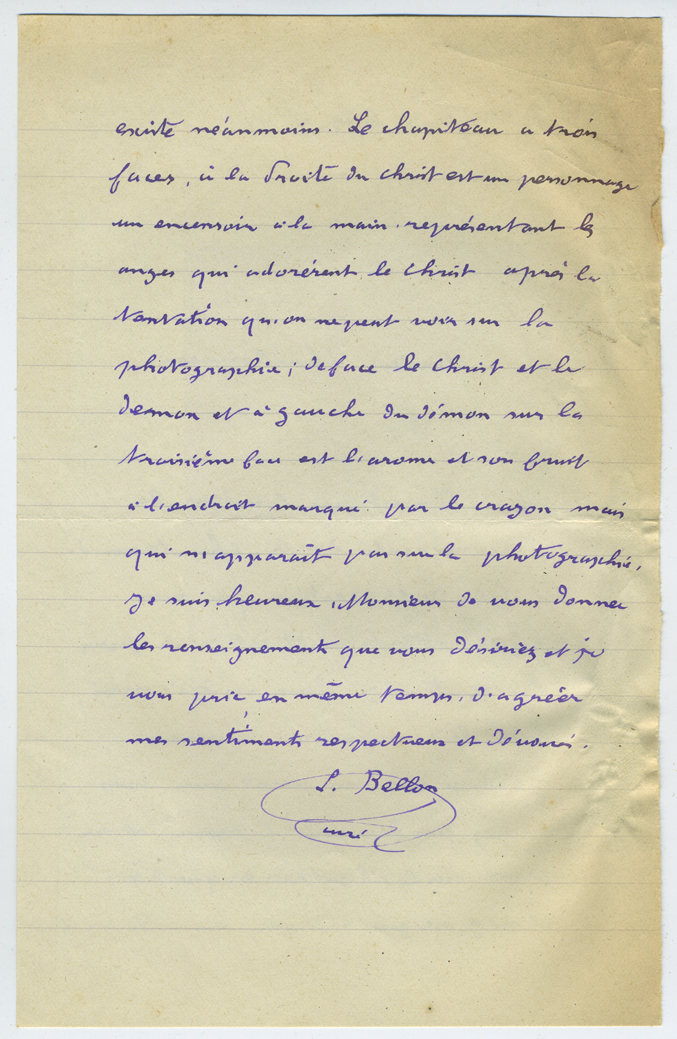 existe néanmoins. Le chapiteau a trois
faces, à la droite du Christ est un personnage
un encensoir à la main représentant les
anges qui adorèrent le Christ après la
tentation qu'on ne peut voir sur la
photographie; de face le Christ et le
demon et à gauche du démon sur la
troisième face est l'arome et son fruit
à l'endroit marqué par le crayon mais
qui n'apparaît pas sur la photographie.
Je suis heureux, Monsieur de vous donner
les renseignements que vous désiriez et je
vous prie, en même temps, d'agréer
mes sentiments respectueux et dévoués.
L. Bellon
curé